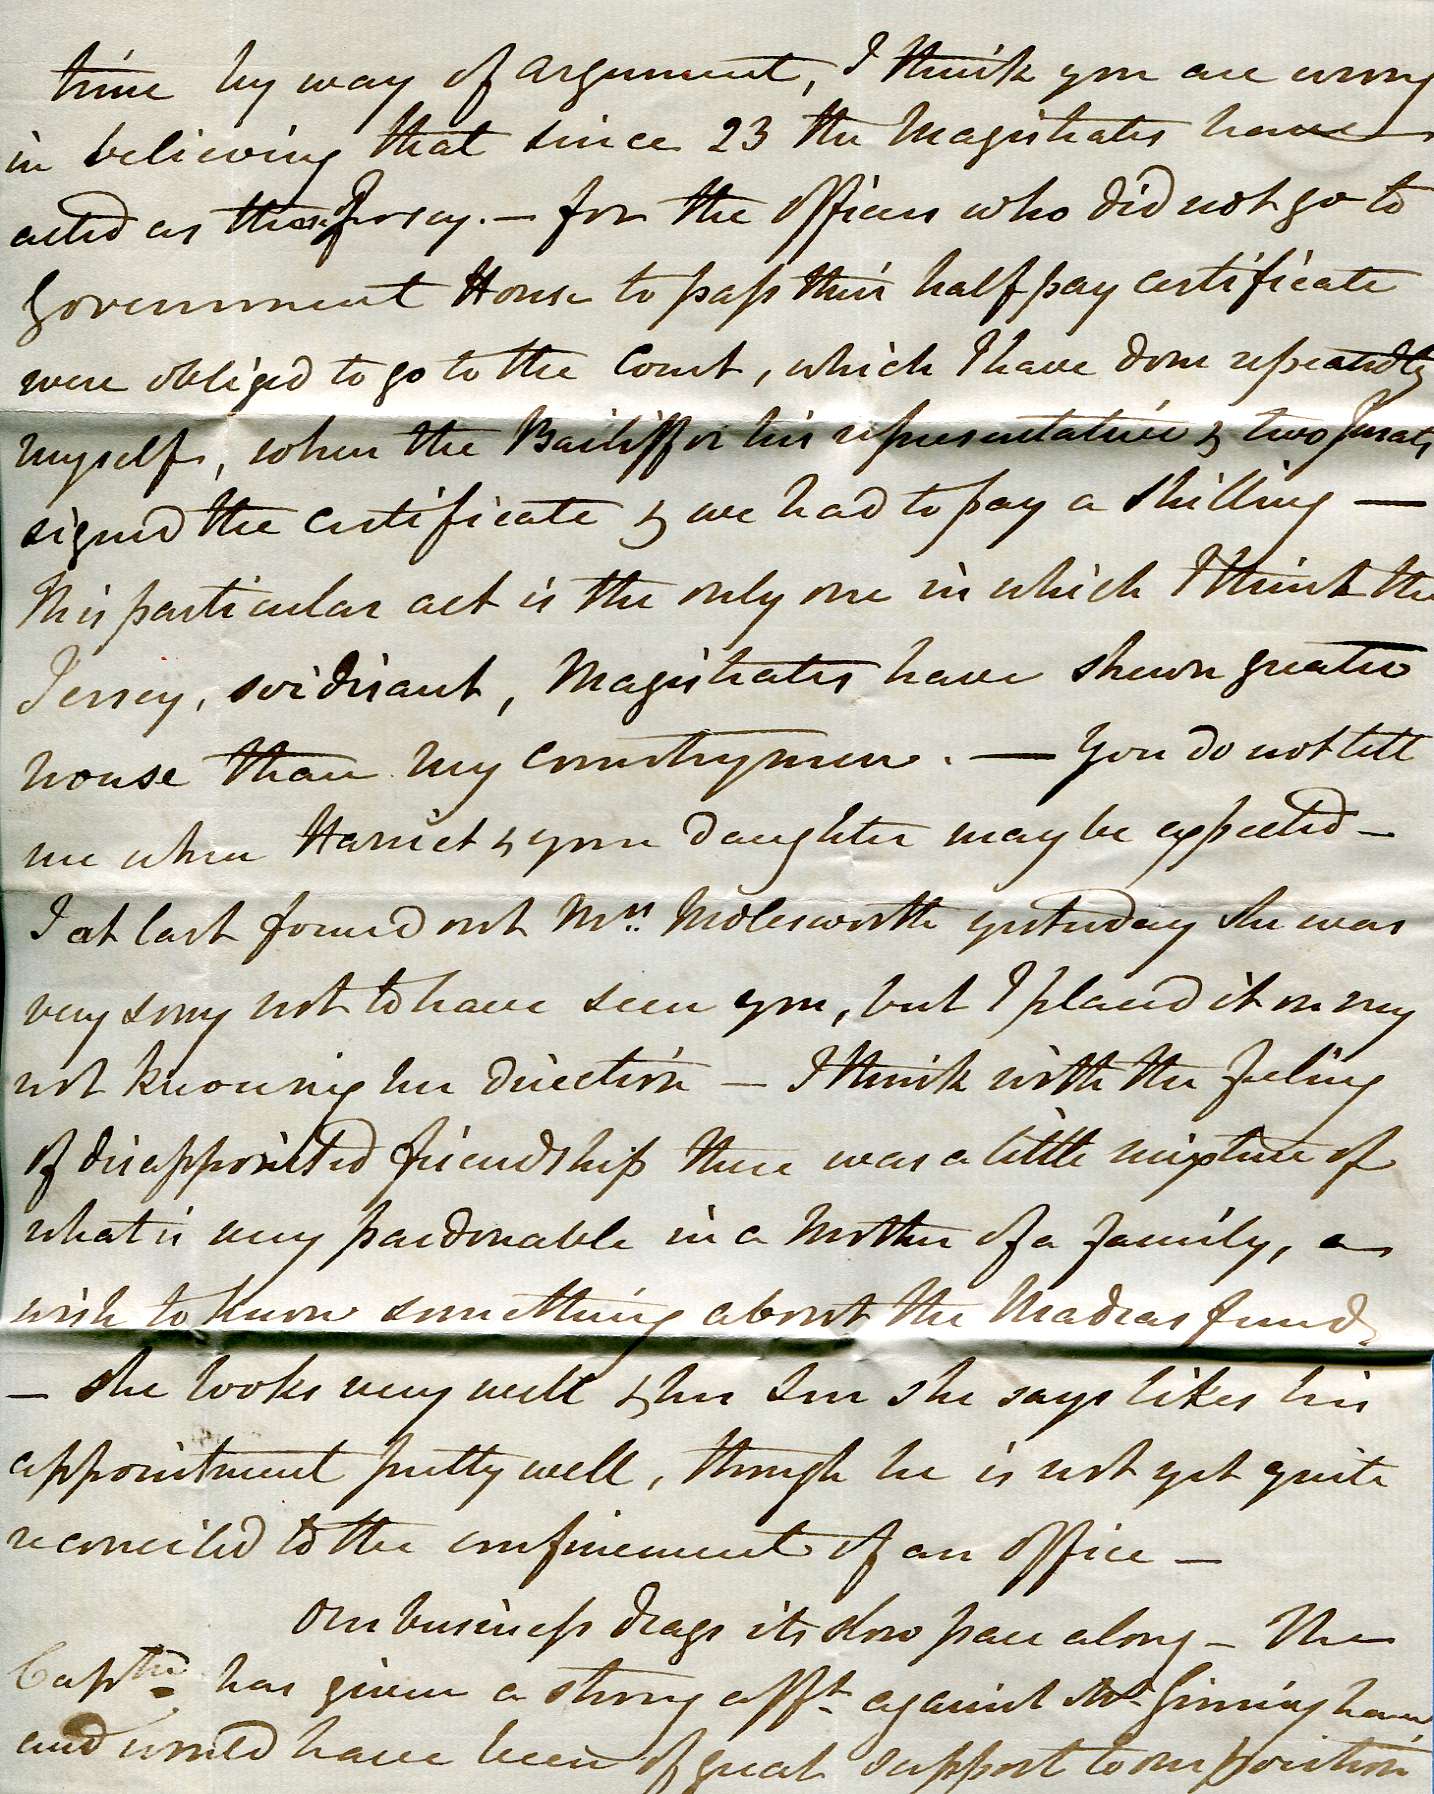 time by way of argument, I think you are wrong
in believing that since 23 the Magistrates have
acted as those of Jersey. — for the officers who did not go to
Government House to pass their half pay certificate
were obliged to go to the Court, which I have done repeatedly
myself, when the Bailiff or his representative & two Jurats
signed the certificate & we had to pay a shilling —
This particular act is the only one in which I think the
Jersey, soidisant, Magistrates have shewn greater
nouse than my countrymen. — You do not tell
me when Harriet & your daughter may be expected —
I at last found out Mrs. Molesworth yesterday she was
very sorry not to have seen you, but I placed it on my
not knowing her direction — I think with the feeling
of disappointed friendship there was a little mixture of
what is very pardonable in a Mother of a family, a
wish to know something about the Madras fund.
— she looks very well & her son she says likes his
appointment pretty well, though he is not yet quite
reconciled to the confinement of an office —
Our business drags its slow pace along — The
has given a strong afft. against Mr.
and would have been of great support to our position